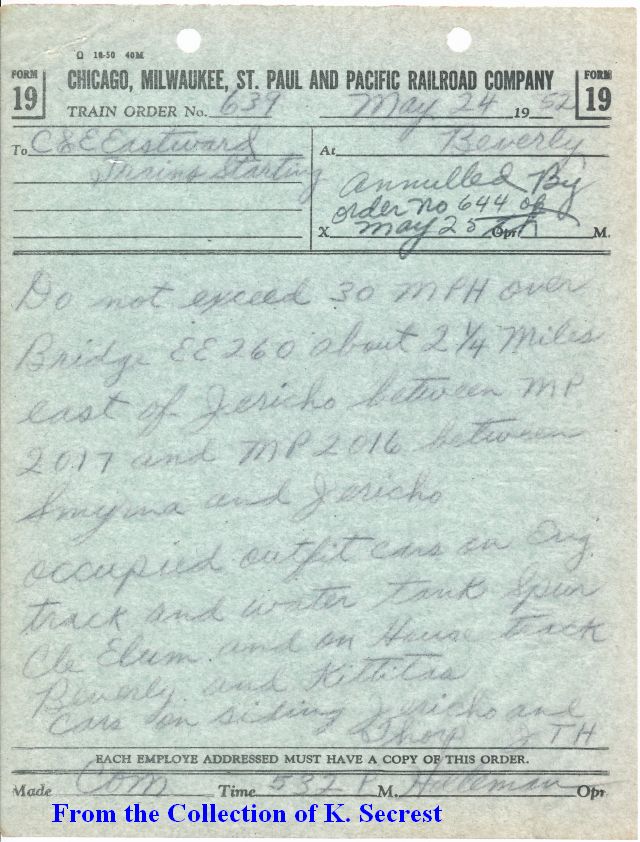 Ω 10-50 40M
FORM 19
CHICAGO, MILWAUKEE, ST. PAUL AND PACIFIC RAILROAD COMPANY
FORM 19
TRAIN ORDER No. 639 May 24 1952
To C&E Eastward
Trains Starting
At Beverly
Annulled By
order no 644 of
X may 25th Opr. M.
Do not exceed 30 MPH over
Bridge EE 260 about 2 1/4 Miles
east of Jericho between MP
2017 and MP 2016 between
Smyrna and Jericho
occupied outfit cars on Eng.
track and water tank Spur
Cle Elum and on House track
Beverly and Kittitas
Cars on siding Jericho and
Thorp JTH
EACH EMPLOYE ADDRESSED MUST HAVE A COPY OF THIS ORDER.
Made Com Time 532 P M. Opr.
From the Collection of K. Secrest